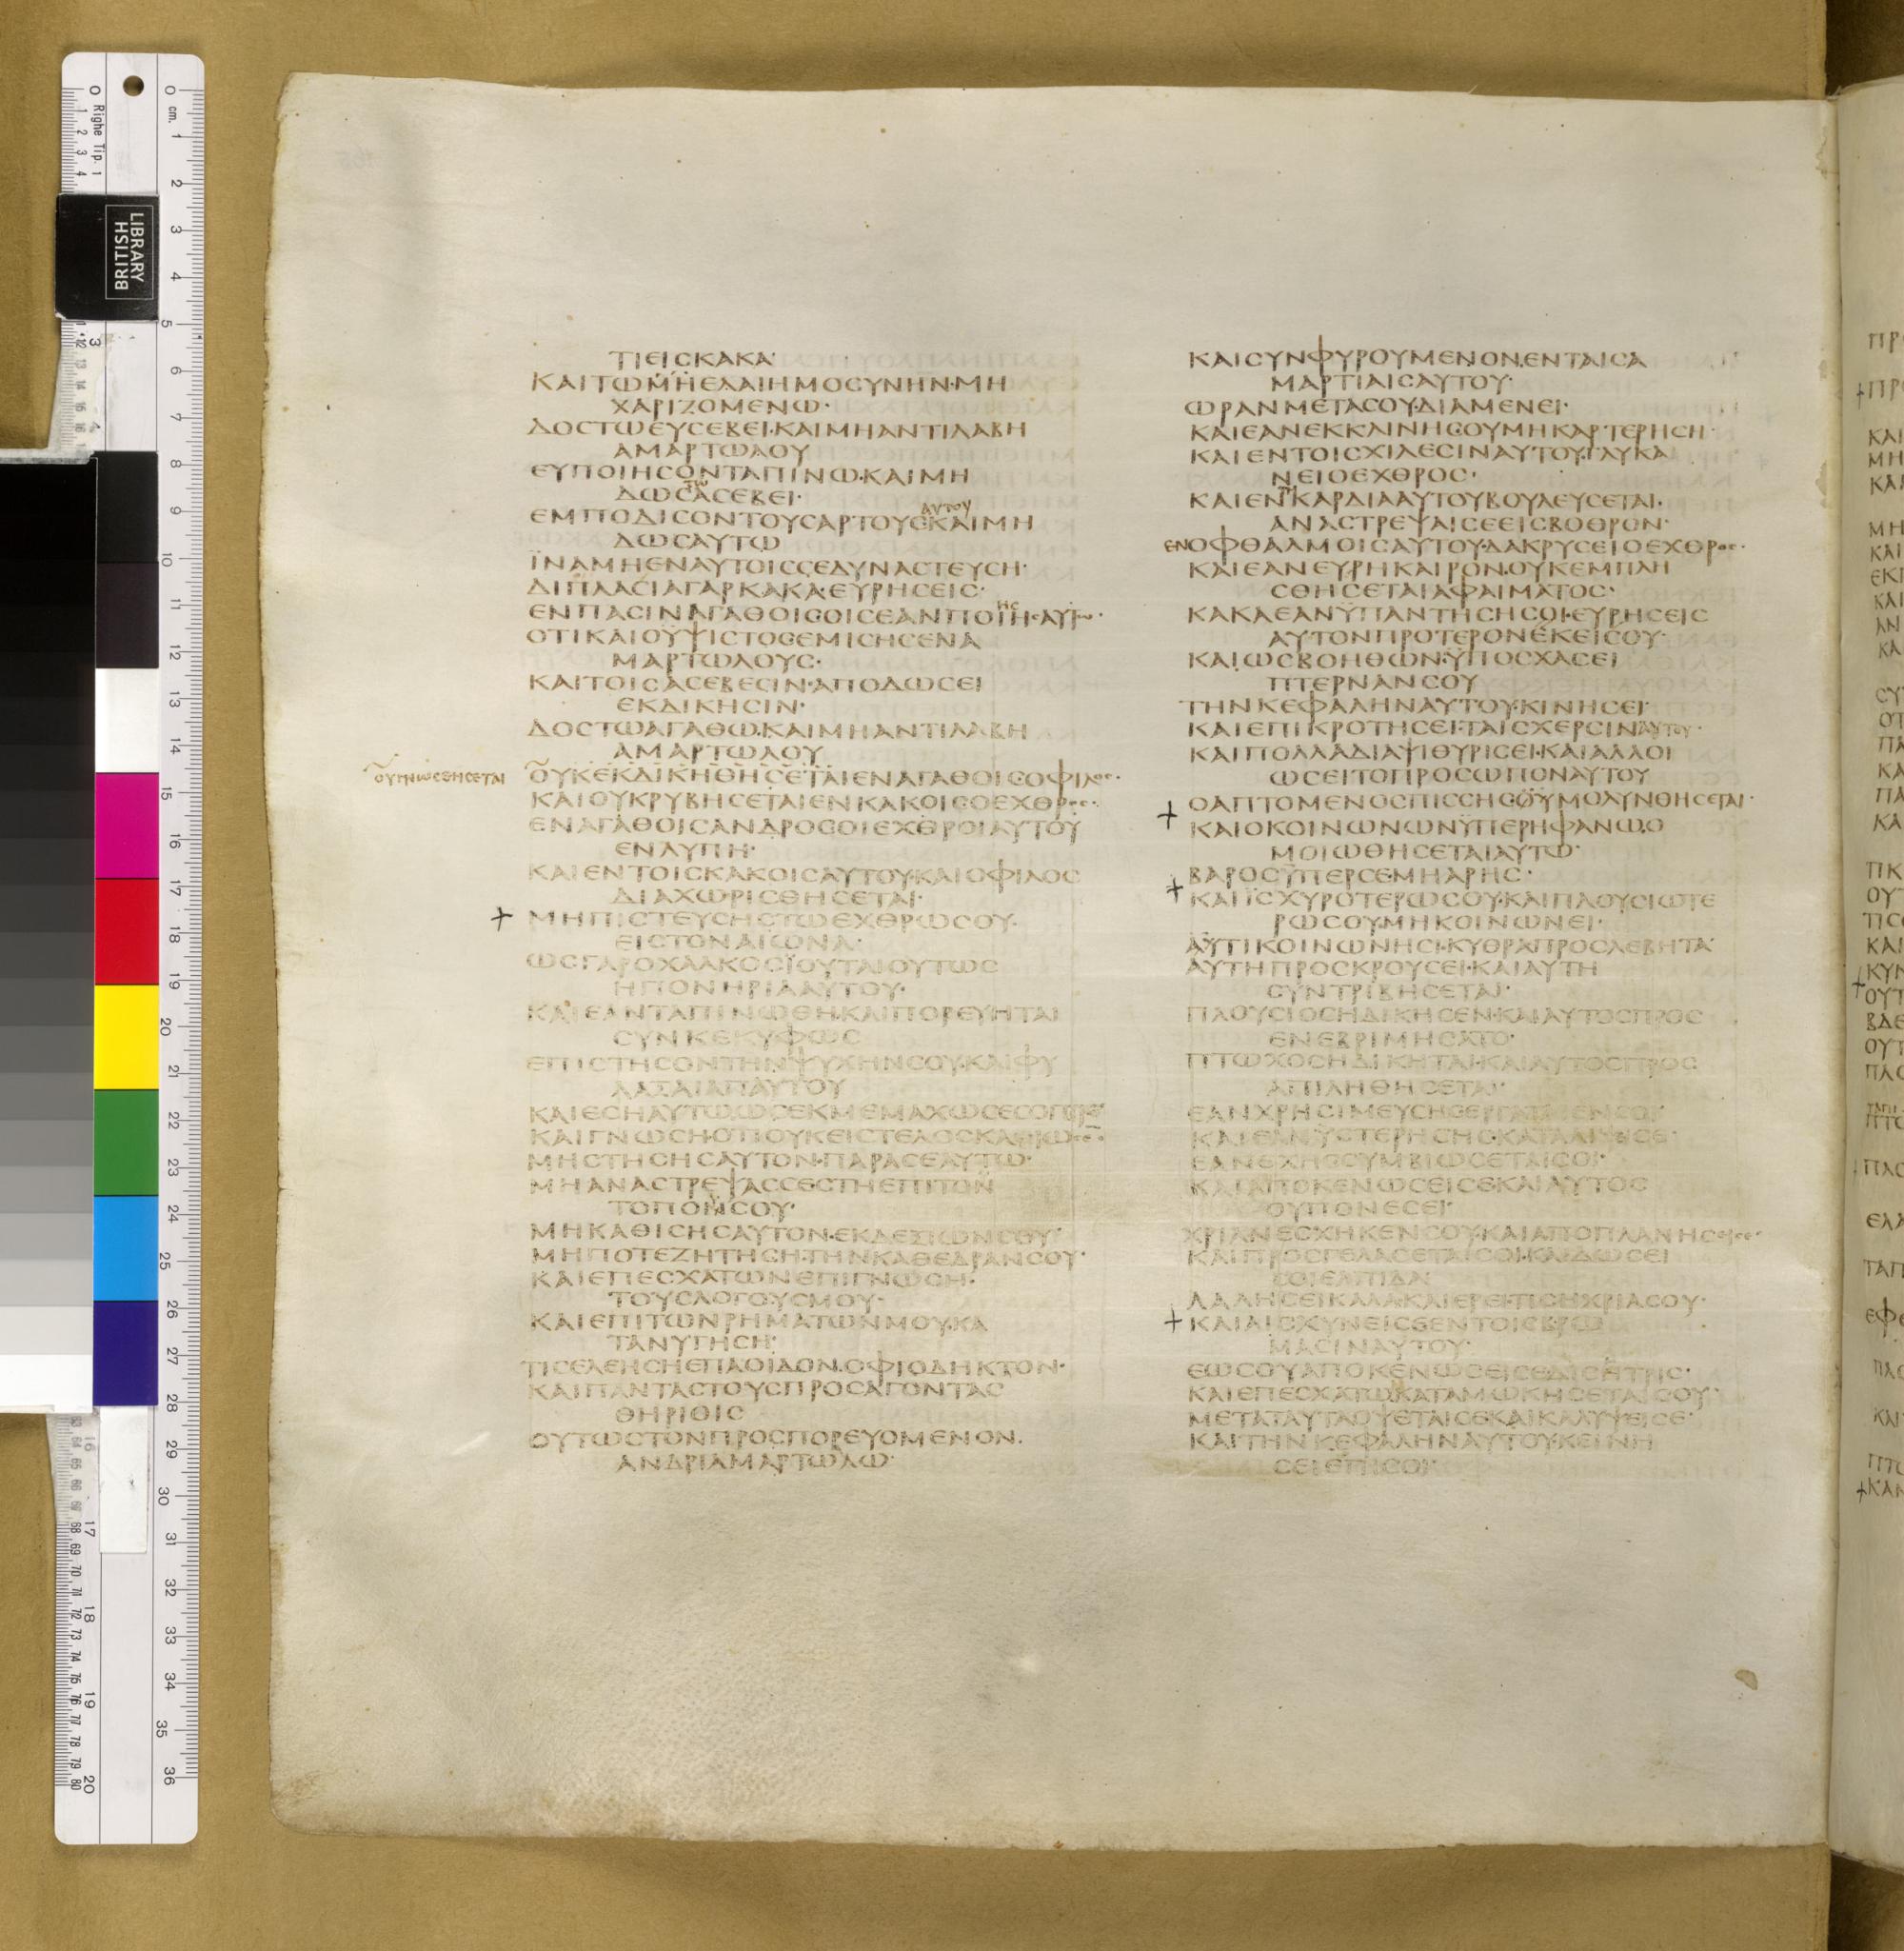 ΤΙΕΙϹΚΑΚΑ·
ΚΑΙΤΩΜΗΕΛΑΙΗΜΟϹΥΝΗΝ·ΜΗ
ΧΑΡΙΖΟΜΕΝΩ·
ΔΟϹΤΩΕΥϹΕΒΕΙ·ΚΑΙΜΗΑΝΤΙΛΑΒΗ
ΑΜΑΡΤΩΛΟΥ
ΕΥΠΟΙΗϹΟΝΤΑΠΙΝΩ·ΚΑΙΜΗ
ΔΩϹΑϹΕΒΕΙ·
ΕΜΠΟΔΙϹΟΝΤΟΥϹΑΡΤΟΥϹΑΥΤΟΥΚΑΙΜΗ
ΔΩϹΑΥΤΩ
ΪΝΑΜΗΕΝΑΥΤΟΙϹϹΕΔΥΝΑϹΤΕΥϹΗ·
ΔΙΠΛΑϹΙΑΓΑΡΚΑΚΑ·ΕΥΡΗϹΕΙϹ·
ΕΝΠΑϹΙΝΑΓΑΘΟΙϹΟΙϹΕΑΝΠΟΙΗϹΑΥΤΩ·
ΟΤΙΚΑΙΟΥΨΙϹΤΟϹΕΜΙϹΗϹΕΝΑ
ΜΑΡΤΩΛΟΥϹ·
ΚΑΙΤΟΙϹΑϹΕΒΕϹΙΝ·ΑΠΟΔΩϹΕΙ
ΕΚΔΙΚΗϹΙΝ·
ΔΟϹΤΩΑΓΑΘΩ·ΚΑΙΜΗΑΝΤΙΛΑΒΗ
ΑΜΑΡΤΩΛΟΥ
ΟΥΓΝΩϹΘΗϹΕΤΑΙ
ΟΥΚΕΚΔΙΚΗΘΗϹΕΤΑΙΕΝΑΓΑΘΟΙϹΟΦΙΛΟϹ·
ΚΑΙΟΥΚΡΥΒΗϹΕΤΑΙΕΝΚΑΚΟΙϹΟΕΧΘΡΟϹ·
ΕΝΑΓΑΘΟΙϹΑΝΔΡΟϹΟΙΕΧΘΡΟΙΑΥΤΟΥ
ΕΝΛΥΠΗ·
ΚΑΙΕΝΤΟΙϹΚΑΚΟΙϹΑΥΤΟΥ·ΚΑΙΟΦΙΛΟϹ
ΔΙΑΧΩΡΙϹΘΗϹΕΤΑΙ·
ΜΗΠΙϹΤΕΥϹΗϹΤΩΕΧΘΡΩϹΟΥ·
ΕΙϹΤΟΝΑΙΩΝΑ·
ΩϹΓΑΡΟΧΑΛΚΟϹΪΟΥΤΑΙΟΥΤΩϹ
ΗΠΟΝΗΡΙΑΑΥΤΟΥ·
ΚΑΙΕΑΝΤΑΠΙΝΩΘΗ·ΚΑΙΠΟΡΕΥΗΤΑΙ
ϹΥΝΚΕΚΥΦΩϹ
ΕΠΙϹΤΗϹΟΝΤΗΝΨΥΧΗΝϹΟΥ·ΚΑΙΦΥ
ΛΑΞΑΙΑΠΑΥΤΟΥ
ΚΑΙΕϹΗΑΥΤΩΩϹΕΚΜΕΜΑΧΩϹΕϹΟΠΤΡΟ
ΚΑΙΓΝΩϹΗ·ΟΤΙΟΥΚΕΙϹΤΕΛΟϹΚΑΤΙΩϹΕ
ΜΗϹΤΗϹΗϹΑΥΤΟΝ·ΠΑΡΑϹΕΑΥΤΩ·
ΜΗΑΝΑϹΤΡΕΨΑϹϹΕϹΤΗΕΠΙΤΟΝ
ΤΟΠΟΝϹΟΥ·
ΜΗΚΑΘΙϹΗϹΑΥΤΟΝ·ΕΚΔΕΞΙΩΝϹΟΥ·
ΜΗΠΟΤΕΖΗΤΗϹΗ·ΤΗΝΚΑΘΕΔΡΑΝϹΟΥ·
ΚΑΙΕΠΕϹΧΑΤΩΝΕΠΙΓΝΩϹΗ·
ΤΟΥϹΛΟΓΟΥϹΜΟΥ·
ΚΑΙΕΠΙΤΩΝΡΗΜΑΤΩΝΜΟΥ·ΚΑ
ΤΑΝΥΓΗϹΗ·
ΤΙϹΕΛΕΗϹΗΕΠΑΟΙΔΟΝ·ΟΦΙΟΔΗΚΤΟΝ·
ΚΑΙΠΑΝΤΑϹΤΟΥϹΠΡΟϹΑΓΟΝΤΑϹ
ΘΗΡΙΟΙϹ
ΟΥΤΩϹΤΟΝΠΡΟϹΠΟΡΕΥΟΜΕΝΟΝ·
ΑΝΔΡΙΑΜΑΡΤΩΛΩ·
ΚΑΙϹΥΝΦΥΡΟΥΜΕΝΟΝ·ΕΝΤΑΙϹΑ
ΜΑΡΤΙΑΙϹΑΥΤΟΥ·
ΩΡΑΝΜΕΤΑϹΟΥ·ΔΙΑΜΕΝΕΙ·
ΚΑΙΕΑΝΕΚΚΛΙΝΗϹΟΥΜΗΚΑΡΤΕΡΗϹΗ·
ΚΑΙΕΝΤΟΙϹΧΙΛΕϹΙΝΑΥΤΟΥ·ΓΛΥΚΑ
ΝΕΙΟΕΧΘΡΟϹ·
ΚΑΙΕΝΤΗΚΑΡΔΙΑΑΥΤΟΥΒΟΥΛΕΥϹΕΤΑΙ·
ΑΝΑϹΤΡΕΨΑΙϹΕΕΙϹΒΟΘΡΟΝ·
ΕΝΟΦΘΑΛΜΟΙϹΑΥΤΟΥ·ΔΑΚΡΥϹΕΙΟΕΧΘΡΟϹ·
ΚΑΙΕΑΝΕΥΡΗΚΑΙΡΟΝ·ΟΥΚΕΜΠΛΗ
ϹΘΗϹΕΤΑΙΑΦΑΙΜΑΤΟϹ·
ΚΑΚΑΕΑΝΫΠΑΝΤΗϹΗϹΟΙ·ΕΥΡΗϹΕΙϹ
ΑΥΤΟΝΠΡΟΤΕΡΟΝΕΚΕΙϹΟΥ·
ΚΑΙΩϹΒΟΗΘΩΝ·ΫΠΟϹΧΑϹΕΙ
ΠΤΕΡΝΑΝϹΟΥ
ΤΗΝΚΕΦΑΛΗΝΑΥΤΟΥ·ΚΙΝΗϹΕΙ·
ΚΑΙΕΠΙΚΡΟΤΗϹΕΙ·ΤΑΙϹΧΕΡϹΙΝΑΥΤΟΥ·
ΚΑΙΠΟΛΛΑΔΙΑΨΙΘΥΡΙϹΕΙ·ΚΑΙΑΛΛΟΙ
ΩϹΕΙΤΟΠΡΟϹΩΠΟΝΑΥΤΟΥ
ΟΑΠΤΟΜΕΝΟϹΠΙϹϹΗϹΟΥΜΟΛΥΝΘΗϹΕΤΑΙ·
ΚΑΙΟΚΟΙΝΩΝΩΝΫΠΕΡΗΦΑΝΩ·Ο
ΜΟΙΩΘΗϹΕΤΑΙΑΥΤΩ·
ΒΑΡΟϹΫΠΕΡϹΕ·ΜΗΑΡΗϹ·
ΚΑΙΪϹΧΥΡΟΤΕΡΩϹΟΥ·ΚΑΙΠΛΟΥϹΙΩΤΕ
ΡΩϹΟΥ·ΜΗΚΟΙΝΩΝΕΙ·
ΑΥΤΙΚΟΙΝΩΝΗϹΙ·ΚΥΘΡΑΠΡΟϹΛΕΒΗΤΑ·
ΑΥΤΗΠΡΟϹΚΡΟΥϹΕΙ·ΚΑΙΑΥΤΗ
ϹΥΝΤΡΙΒΗϹΕΤΑΙ·
ΠΛΟΥϹΙΟϹΗΔΙΚΗϹΕΝ·ΚΑΙΑΥΤΟϹΠΡΟϹ
ΕΝΕΒΡΙΜΗϹΑΤΟ·
ΠΤΩΧΟϹΗΔΙΚΗΤΑΙ·ΚΑΙΑΥΤΟϹΠΡΟϹ
ΑΠΙΛΗΘΗϹΕΤΑΙ·
ΕΑΝΧΡΗϹΙΜΕΥϹΗϹΕΡΓΑΤΕ ΕΝϹΟΙ·
ΚΑΙΕΑΝΫϹΤΕΡΗϹΗϹ·ΚΑΤΑΛΙΨΙϹΕ·
ΕΑΝΕΧΗϹϹΥΜΒΙΩϹΕΤΑΙϹΟΙ·
ΚΑΙΑΠΟΚΕΝΩϹΕΙϹΕ·ΚΑΙΑΥΤΟϹ
ΟΥΠΟΝΕϹΕΙ·
ΧΡΙΑΝΕϹΧΗΚΕΝϹΟΥ·ΚΑΙΑΠΟΠΛΑΝΗϹΕΙϹΕ·
ΚΑΙΠΡΟϹΓΕΛΑϹΕΤΑΙϹΟΙ·ΚΑΙΔΩϹΕΙ
ϹΟΙΕΛΠΙΔΑ
ΛΑΛΗϹΕΙΚΑΛΑ·ΚΑΙΕΡΕΙ·ΤΙϹΗΧΡΙΑϹΟΥ·
ΚΑΙΑΙϹΧΥΝΕΙϹΕΕΝΤΟΙϹΒΡΩ
ΜΑϹΙΝΑΥΤΟΥ·
ΕΩϹΟΥΑΠΟΚΕΝΩϹΕΙϹΕΔΙϹΗΤΡΙϹ·
ΚΑΙΕΠΕϹΧΑΤΩΚΑΤΑΜΩΚΗϹΕΤΑΙϹΟΥ·
ΜΕΤΑΤΑΥΤΑΟΨΕΤΑΙϹΕΚΑΙΚΑΛΥΨΕΙϹΕ·
ΚΑΙΤΗΝΚΕΦΑΛΗΝΑΥΤΟΥ·ΚΕΙΝΗ
ϹΕΙΕΠΙϹΟΙ·
BRITISH
LIBRARY
Righe Tip. 1
cm.